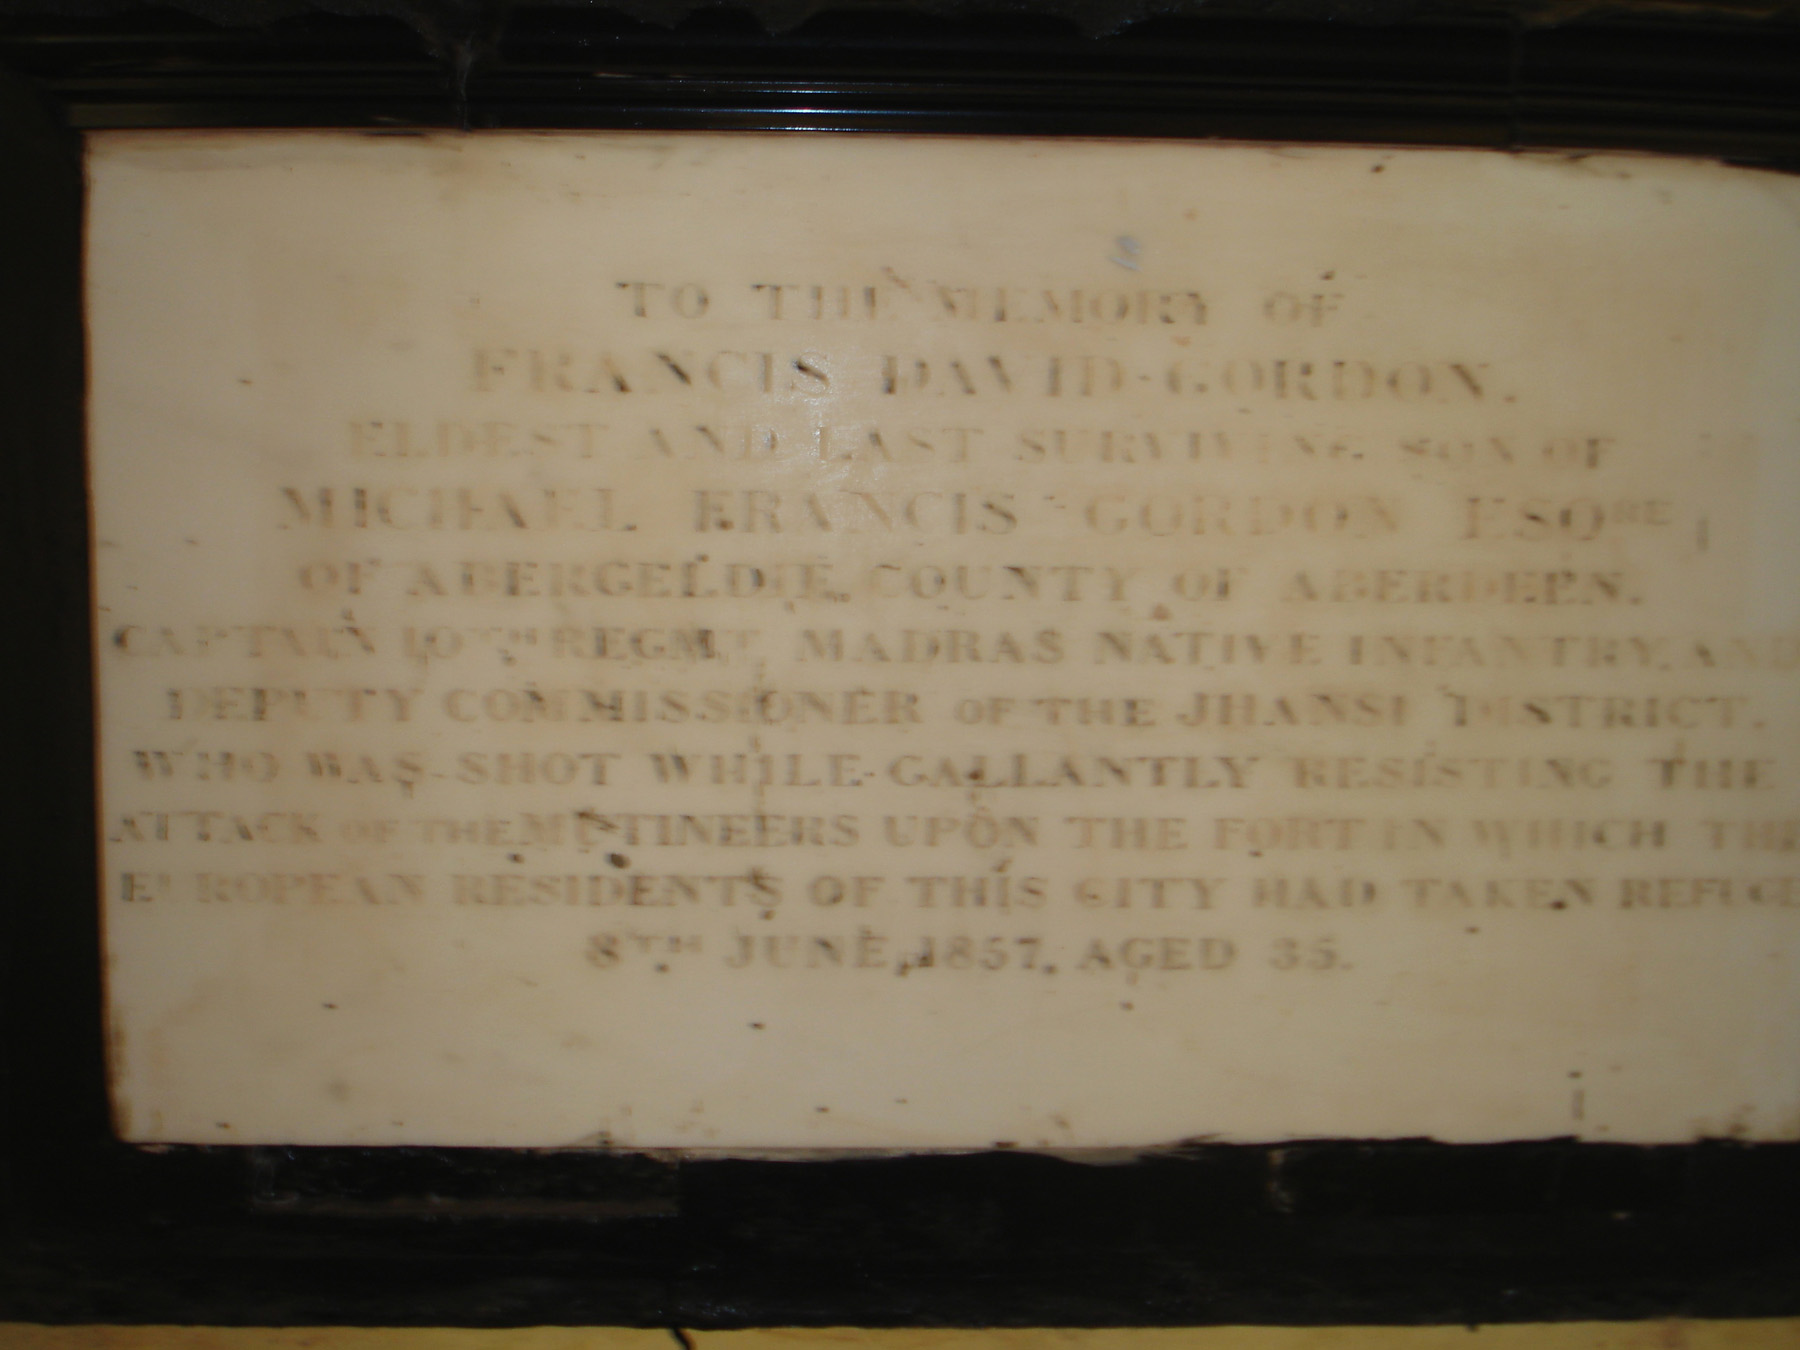 TO THE MEMORY OF
FRANCIS DAVID GORDON.
ELDEST AND LAST SURVIVING SON OF
MICHAEL FRANCIS GORDON ESQRE
OF ABERGELDIE. COUNTY OF ABERDEEN.
CAPTAIN 10TH REGMT MADRAS NATIVE INFANTRY, AND
DEPUTY COMMISSIONER OF THE JHANSI DISTRICT.
WHO WAS SHOT WHILE GALLANTLY RESISTING THE
ATTACK OF THE MUTINEERS UPON THE FORT IN WHICH THE
EUROPEAN RESIDENTS OF THIS CITY HAD TAKEN REFUGE
8TH JUNE, 1857. AGED 35.